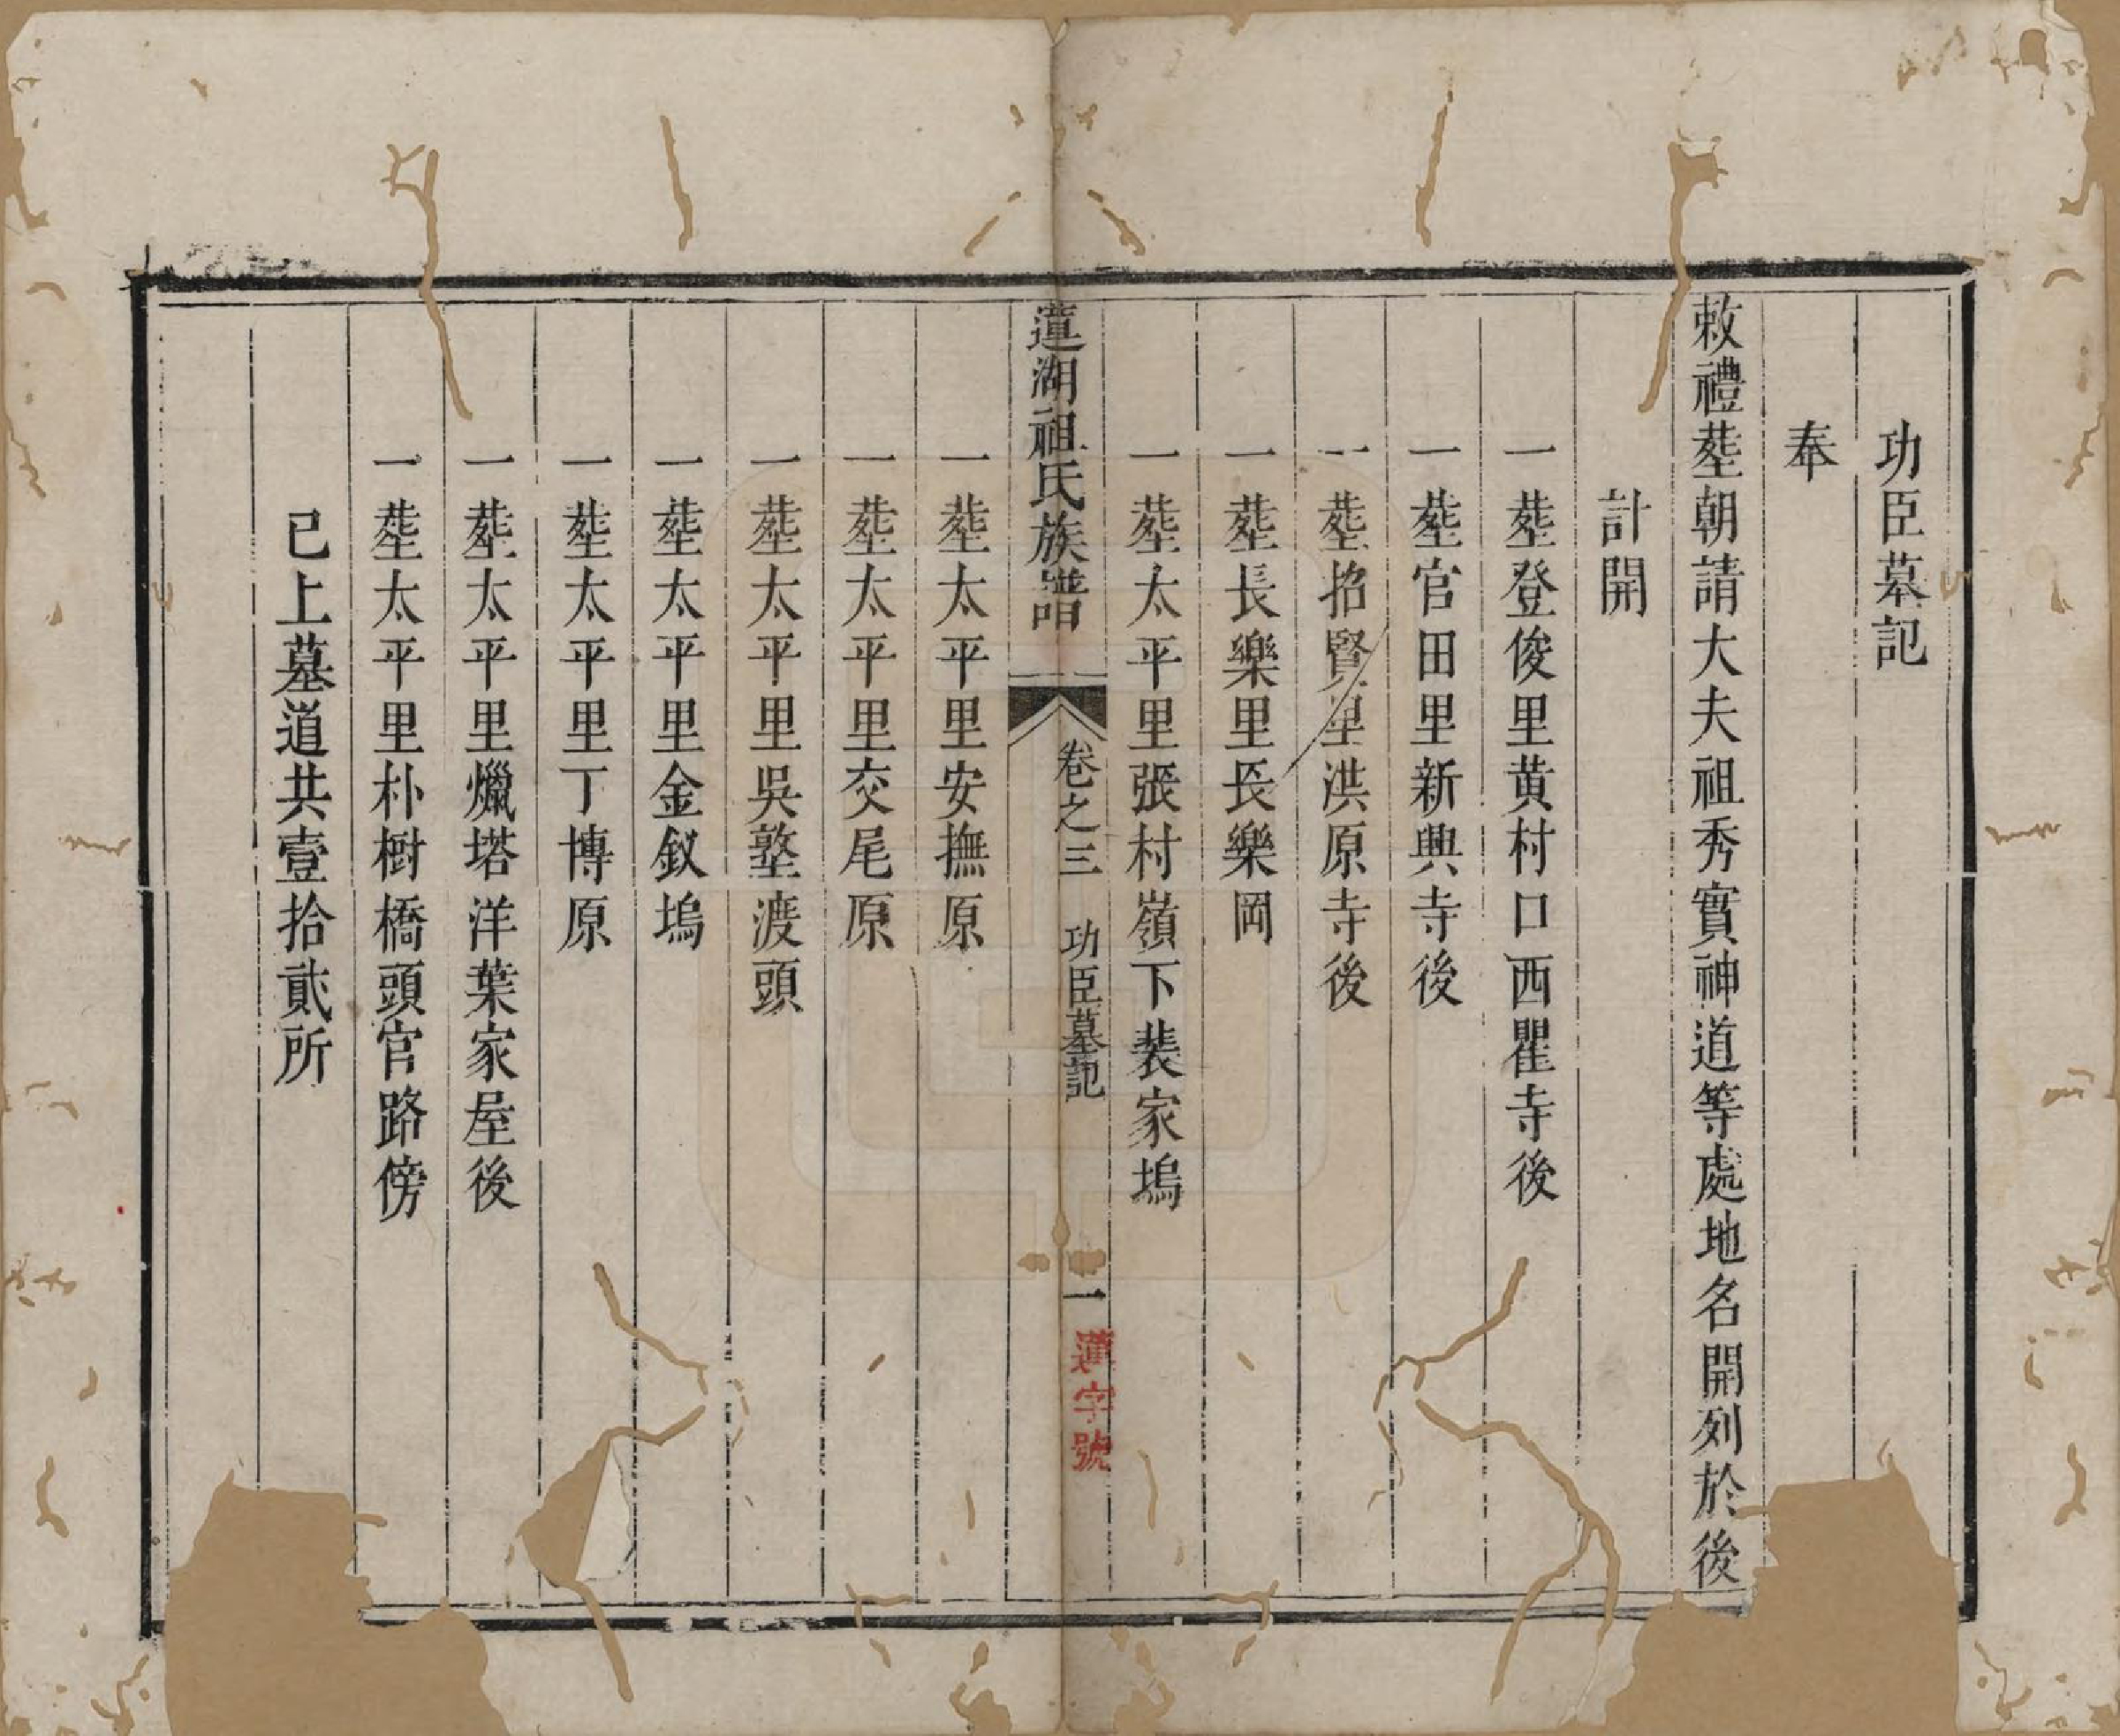 功臣墓記
奉
敕禮塟朝請大夫祖秀實神道等處地名開列於後
計開
一塟登俊里黄村口西瞿寺後
一塟官田里新興寺後
一塟招賢里洪原寺後
一塟長樂里長樂岡
一塟太平里張村嶺下裴家塢
蓮湖祖氏族譜 卷之三 功臣墓記 一 蓮字號
一塟太平里安撫原
一塟太平里交尾原
一塟太平里吳墪渡頭
一塟太平里金釵塢
一塟太平里丁博原
一塟太平里爉塔洋葉家屋後
一塟太平里朴樹橋頭官路傍
已上墓道共壹拾貳所